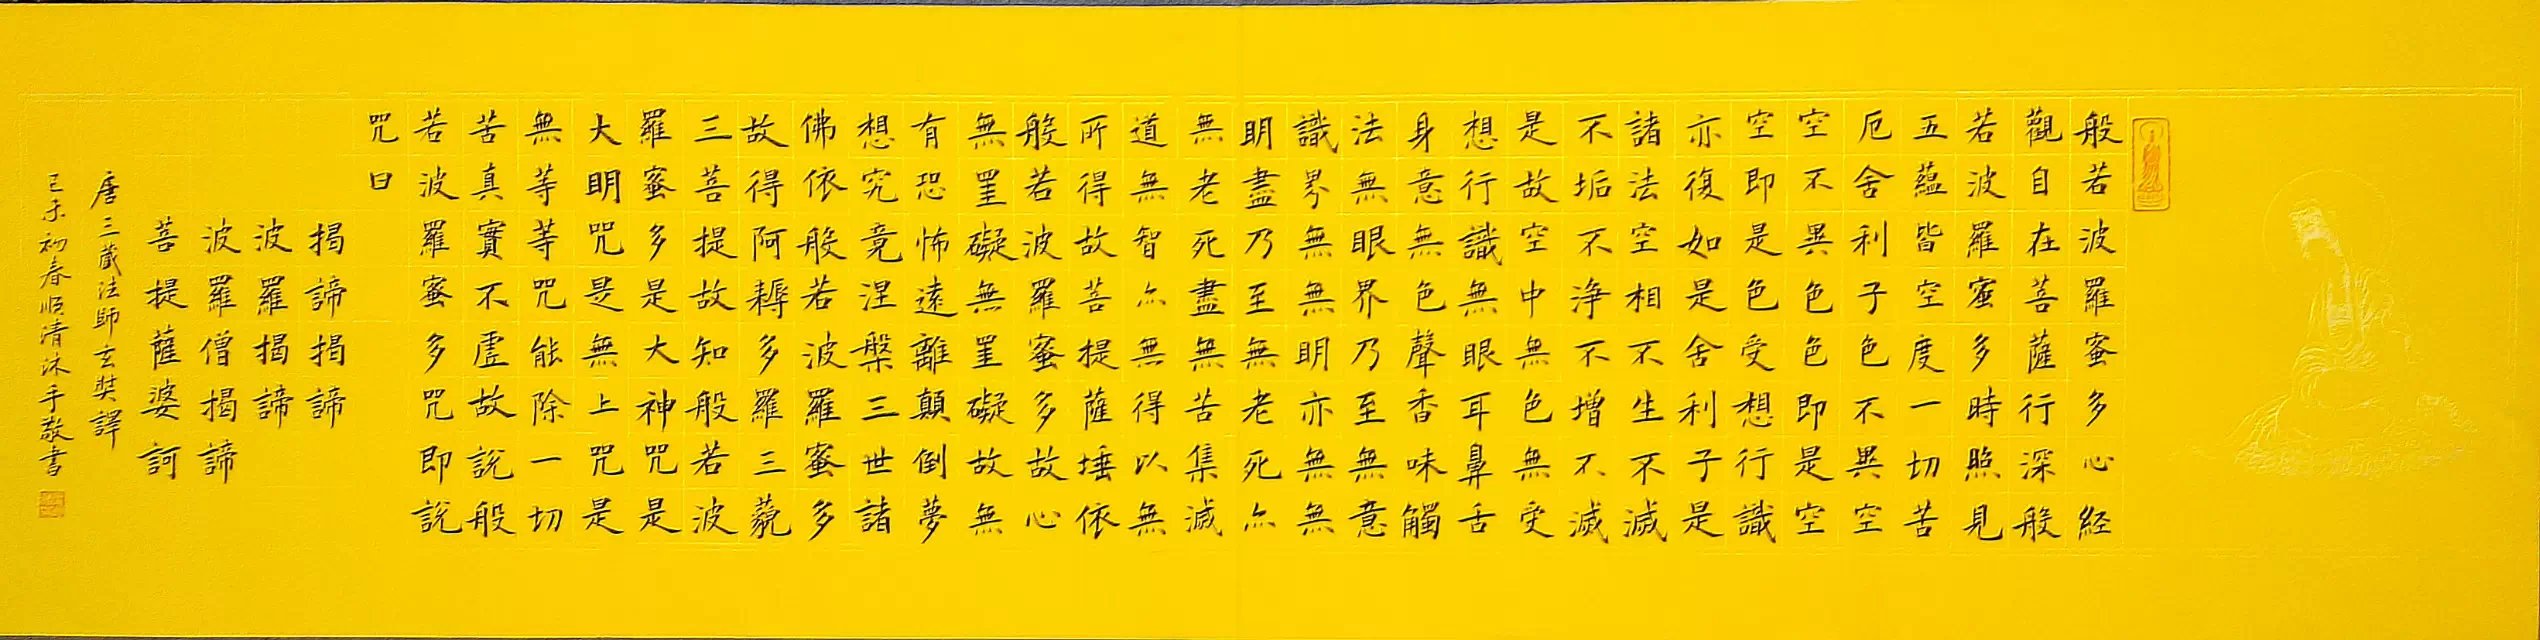 般若波羅蜜多心经
觀自在菩薩行深般
若波羅蜜多時照見
五蘊皆空度一切苦
厄舍利子色不異空
空不異色色即是空
空即是色受想行識
亦復如是舍利子是
諸法空相不生不滅
不垢不浄不增不滅
是故空中無色無受
想行識無眼耳鼻舌
身意無色聲香味觸
法無眼界乃至無意
識界無無明亦無無
明盡乃至無老死亦
無老死盡無苦集滅
道無智亦無得以無
所得故菩提薩埵依
般若波羅蜜多故心
無罣礙無罣礙故無
有恐怖遠離顛倒夢
想究竟涅槃三世諸
佛依般若波羅蜜多
故得阿耨多羅三藐
三菩提故知般若波
羅蜜多是大神咒是
大明咒是無上咒是
無等等咒能除一切
苦真實不虛故說般
若波羅蜜多咒即說
咒曰
揭諦揭諦
波羅揭諦
波羅僧揭諦
菩提薩婆訶
唐三藏法師玄奘譯
己未初春順清沐手敬書